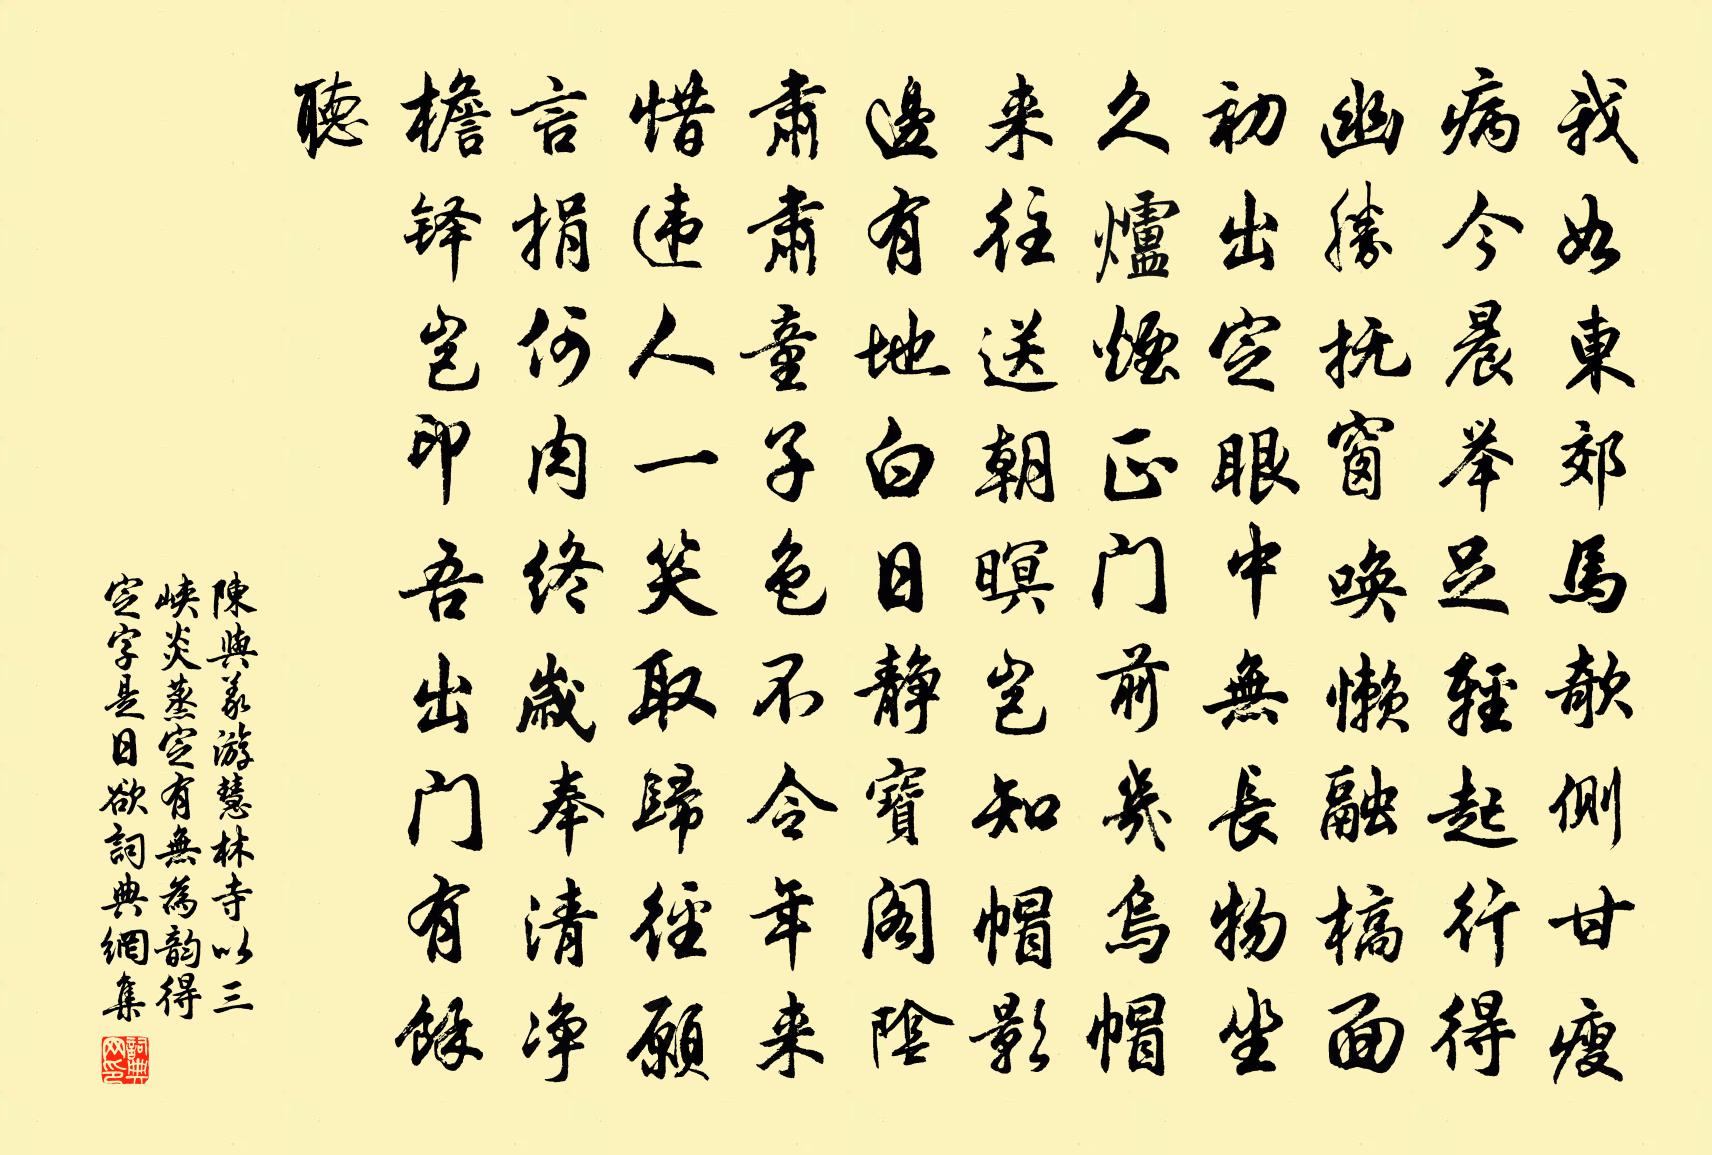 我如東郊馬欹側甘瘦
病今晨举足輕起行得
幽勝抚窗唤懒融槁面
初出定眼中無長物坐
久爐煙正门前幾烏帽
来往送朝暝岂知帽影
邊有地白日静寶阁陰
肃肃童子色不令年来
惜违人一笑取歸徑願
言捐何肉终歲奉清净
檐铎岂印吾出门有餘
聽
陳與義游慧林寺以三
峡炎蒸定有無為韵得
定字是日欲詞典網集